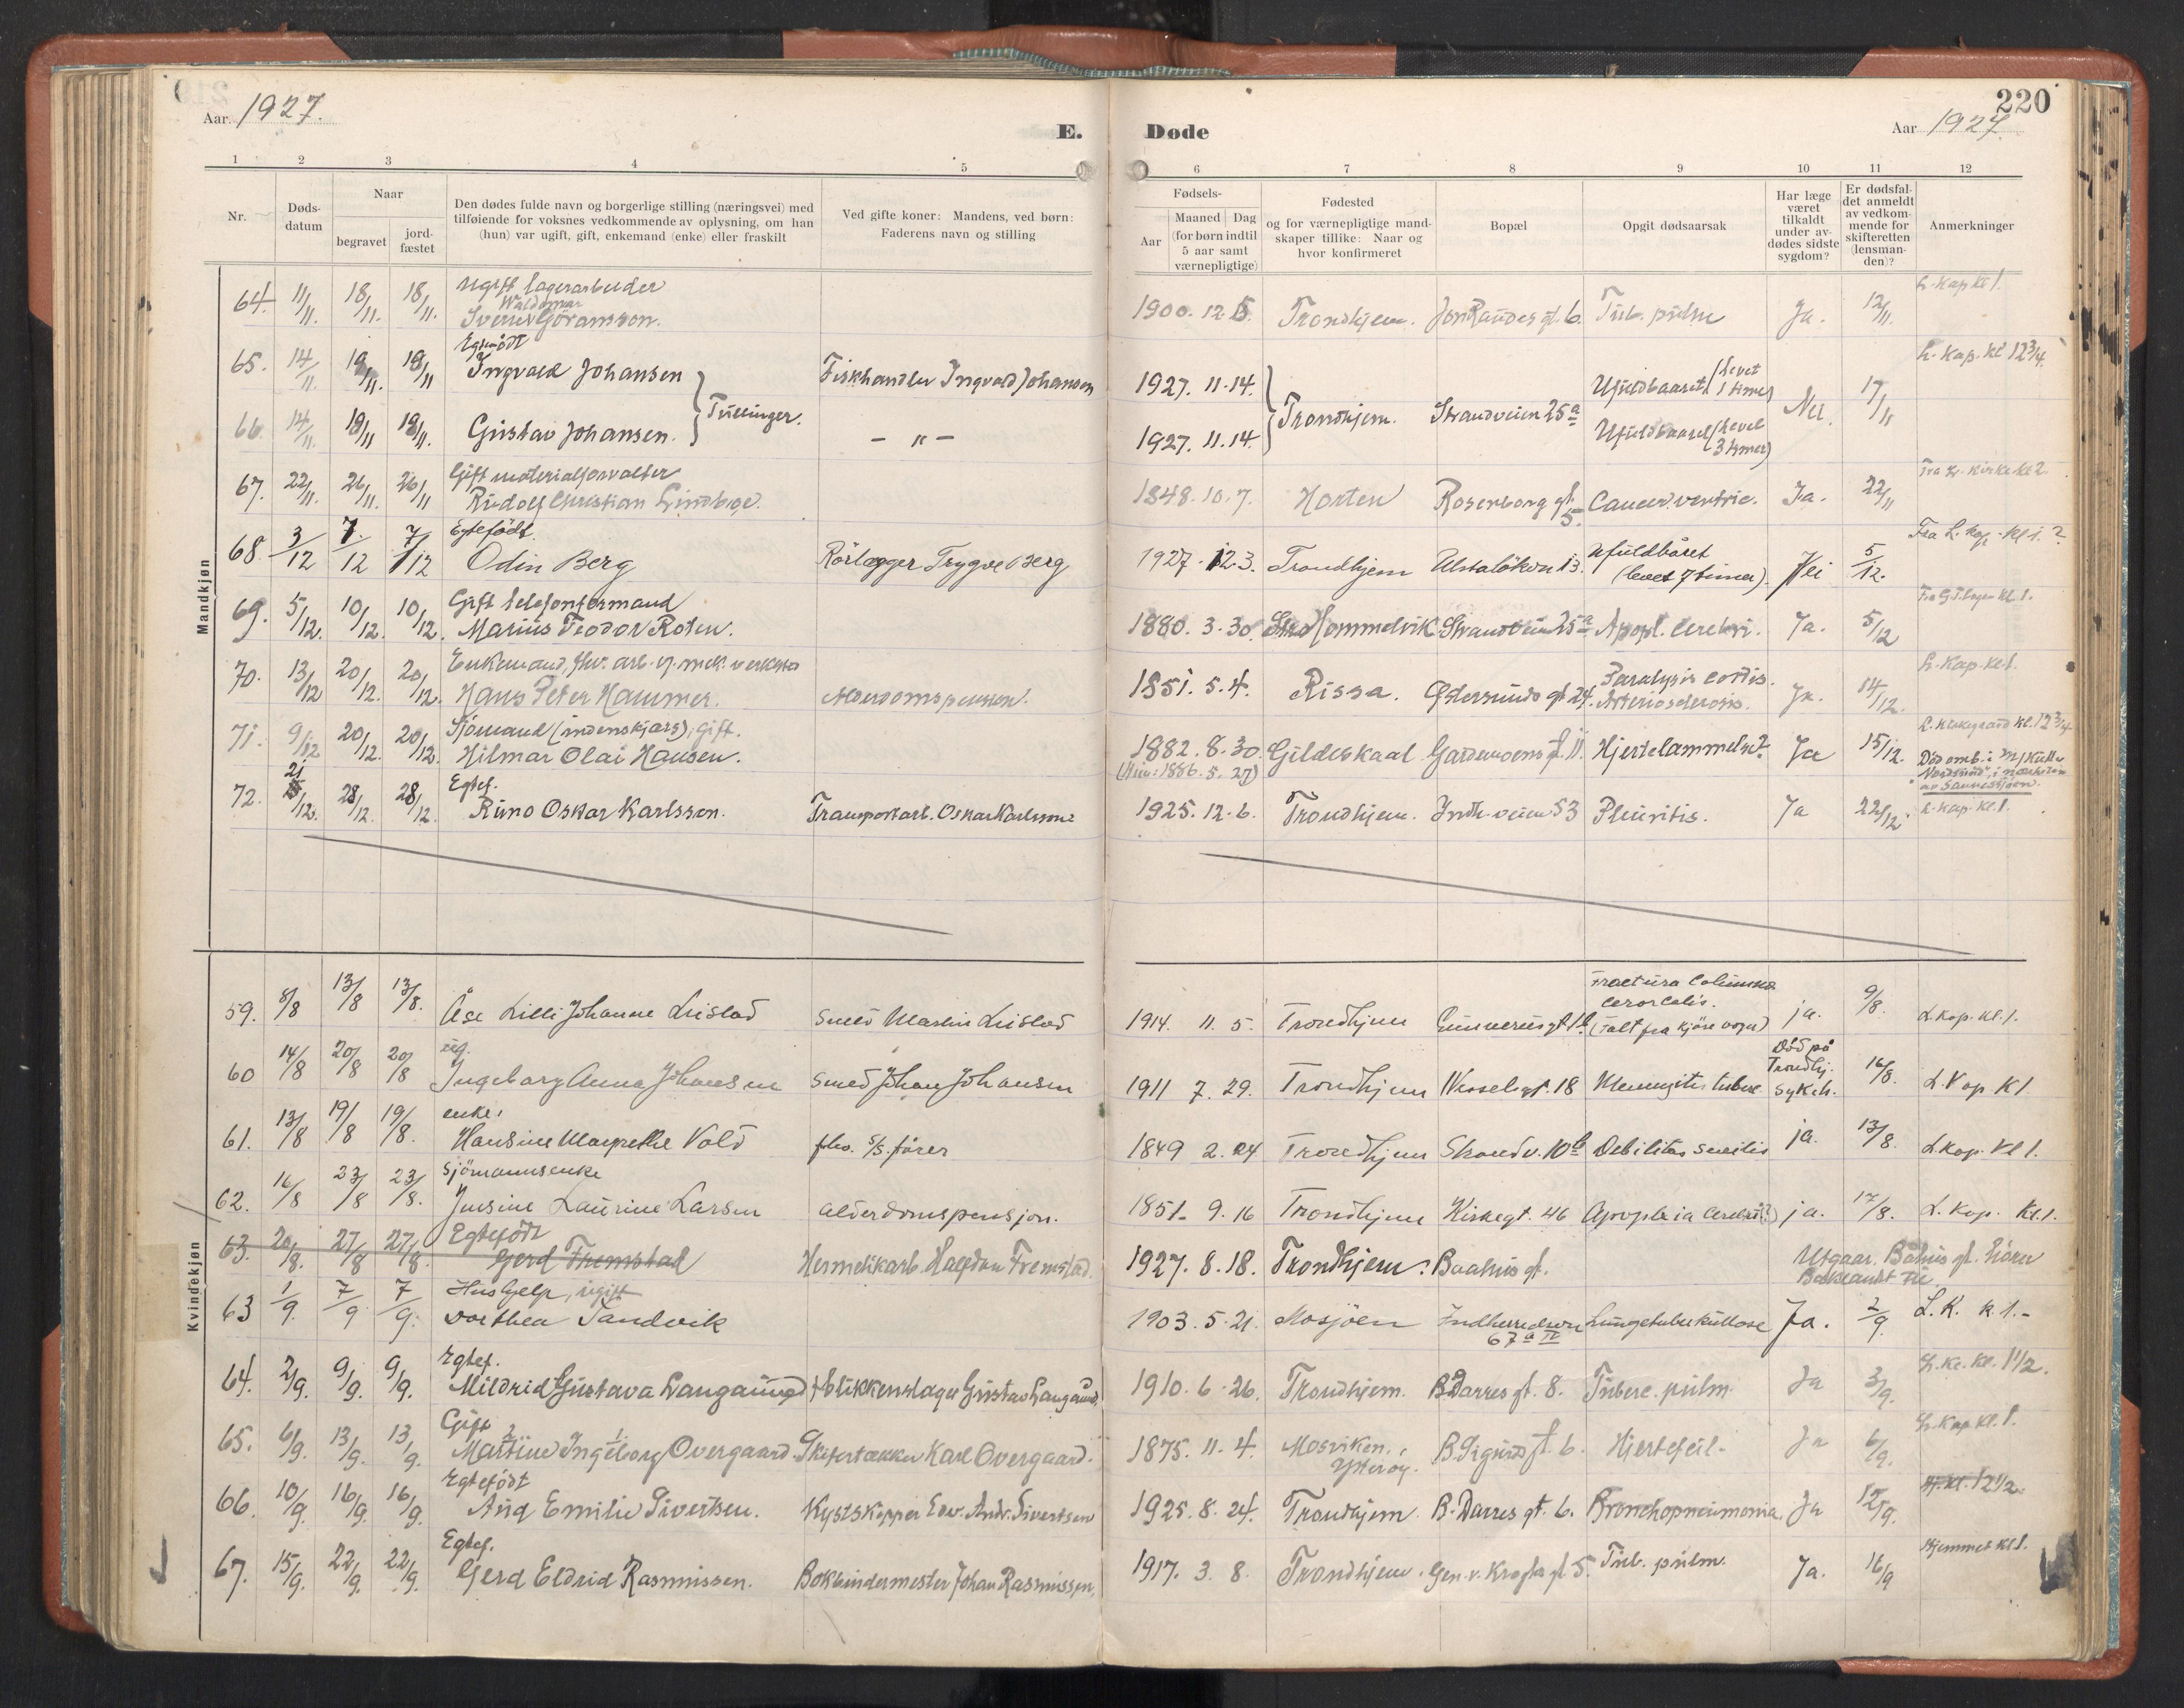 220
Aar. 1927.
E. Døde
Aar 1927.
1 2 3 4 5 6 7 8 9 10 11 12
Nr.
Døds-
datum
Naar
begravet
jord-
fæstet
Den dødes fulde navn og borgerlige stilling (næringsvei) med
tilføiende for voksnes vedkommende av oplysning, om han
(hun) var ugift, gift, enkemand (enke) eller fraskilt
Ved gifte koner: Mandens, ved børn:
Faderens navn og stilling
Fødsels-
Aar
Maaned Dag
(for børn indtil
5 aar samt
værnepligtige)
Fødested
og for værnepligtige mand-
skaper tillike: Naar og
hvor konfirmeret
Bopæl
Opgit dødsaarsak
Har læge
været
tilkaldt
under av-
dødes sidste
sygdom?
Er dødsfal-
det anmeldt
av vedkom-
mende for
skifteretten
(lensman-
den)?
Anmerkninger
Mandkjøn
Ugift lagerarbeider L. kap kl 1.
Waldemar
64. 11/11. 18/11. 18/11. Sverre Göransson. 1900. 12. 5. Trondhjem. Jon Raudes gt. 6. Tub. pulm Ja. 12/11.
Egtefödt L. kap. kl 12 3/4.
65. 14/11. 19/11. 19/11 Ingvald Johansen Fiskhandler Ingvald Johansen 1927. 11. 14. Ufuldbaaret (levet 1 time) 17/11
Tvillinger. Trondhjem. Strandveien 25a Nei.
66 14/11. 19/11 19/11. Gustav Johansen. - " - 1927. 11. 14. Ufuldbaaret (levet 3 timer)
Gift materialforvalter Fra L. kirke kl 2.
67. 22/11. 26/11. 26/11 Rudolf Christian Lindboe. 1848. 10. 7. Horten Rosenborg gt. 5. Cancer. ventric. Ja. 22/11
Egtefödt. Fra L. kap. kl 1.?
68. 3/12 7/12 7/12 Odin Berg Rörlægger Trygve Berg 1927. 12. 3. Trondhjem 13. Ufuldbåret (levet 7 timer). Nei 5/12.
Gift telefonformand
69. 5/12. 10/12. 10/12. Marius Teodor Roten. 1880. 3. 30. Hommelvik Strandveien 25a Apopl. cerebri. Ja. 5/12
Enkemand, fhv. arb. v. mek. verksted L. kap. kl 1.
70. 13/12 20/12. 20/12. Hans Peter Hammer. Alderdomspension. 1851. 5. 4. Rissa. Østersunds gt 24. Paralysis cordis. Arteriosclerosis. Ja. 14/12.
Sjömand (indenskjærs), gift. L. kirkegaard kl. 12 3/4.
71. 9/12 20/12. 20/12. Hilmar Olai Hansen. 1882. 8. 30. Gildeskaal Gardemoens gt. 11. Hjertelammelse? Ja 15/12. Död omb. i M/Kutter
(Min: 1886. 5. 27) "Nordsköd", i nærheten
av Sannessjøen.
Egtef.
72. 21/12. 28/12. 28/12. Runo Oskar Karlsson. Transportarb. Oskar Karlsson 1925. 12. 6. Trondhjem. Indh. veien 53 Pleuritis. Ja 22/12 L. kap. kl. 1.
Kvindekjøn
59. 8/8 13/8 13/8. Åse Lilli Johanne Leistad Smed Martin Leistad 1914. 11. 5. Trondhjem Gunnerus gt 1b Fractura Columna
(Falt fra kjöre vogn) ja. 9/8. L. kap. kl. 1.
ug.
60 14/8 20/8 20/8 Ingeborg Anna Johansen Smed Johan Johansen 1911 7. 29. Trondhjem Wesselsgt. 18 Meningitis tuberc. Död på Trondhj. Sykeh. 16/8. L. Kap kl
enke,
61. 13/8 19/8 19/8. Hansine Margrethe Vold fhv. s/s. förer 1849 2. 24 Trondhjem Strandv. 10b Debilitas senilis ja. 13/8. L. kap. kl 1.
Sjömannsenke
62. 16/8 23/8 23/8. Jensine Laurine Larsen alderdomspensjon. 1851. 9. 16 Trondhjem Kirkegt. 46 Apoplexia cerebri(?) ja. 17/8. L. kap. kl. 1.
Egtefödt
63. 20/8. 27/8 27/8. Gerd Fremstad Hermetikarb. Halfdan Fremstad. 1927. 8. 18. Trondhjem. Baahus gt. Utgaar. Båhus gt. hörer Baklandet til.
Hushjelp, ugift
63 1/9. 7/9 7/9. Dorthea Sandvik 1903. 5. 21. Mosjöen Indherredsvn 67a IV Lungetuberkulose Ja. 2/9. L. K. k 1. -
Egtef.
64. 2/9. 9/9. 9/9. Mildrid Gustava Langaune Blikkenslager Gustav Langaune. 1910. 6. 26. Trondhjem. B Darres gt. 8. Tuberc. pulm. Ja 3/9. L. k. kl. 1 1/2.
Gift L. kap kl. 1.
65. 6/9. 13/9. 13/9. Martine Ingeborg Overgaard. Skifertækker Karl Overgaard. 1875. 11. 4. Mosviken, Ytterøy. B. Sigurds gt. 6. Hjertefeil. Ja 6/9.
Egtefödt
66. 10/9. 16/9. 16/9. Aug Emilie Sivertsen. Kystskipper Edv. Andr. Sivertsen 1925. 8. 24. Trondhjem. B. Darres gt. 6. Bronchopneumonia. Ja 12/9. kl. 12 1/2.
Egtef. Hjemmet kl 1.
67. 15/9. 22/9. 22/9. Gerd Eldrid Rasmussen. Bokbindermester Johan Rasmussen. 1917. 3. 8. Trondhjem. Gen. v. Kroghs gt 5. Tub. pulm. Ja. 16/9